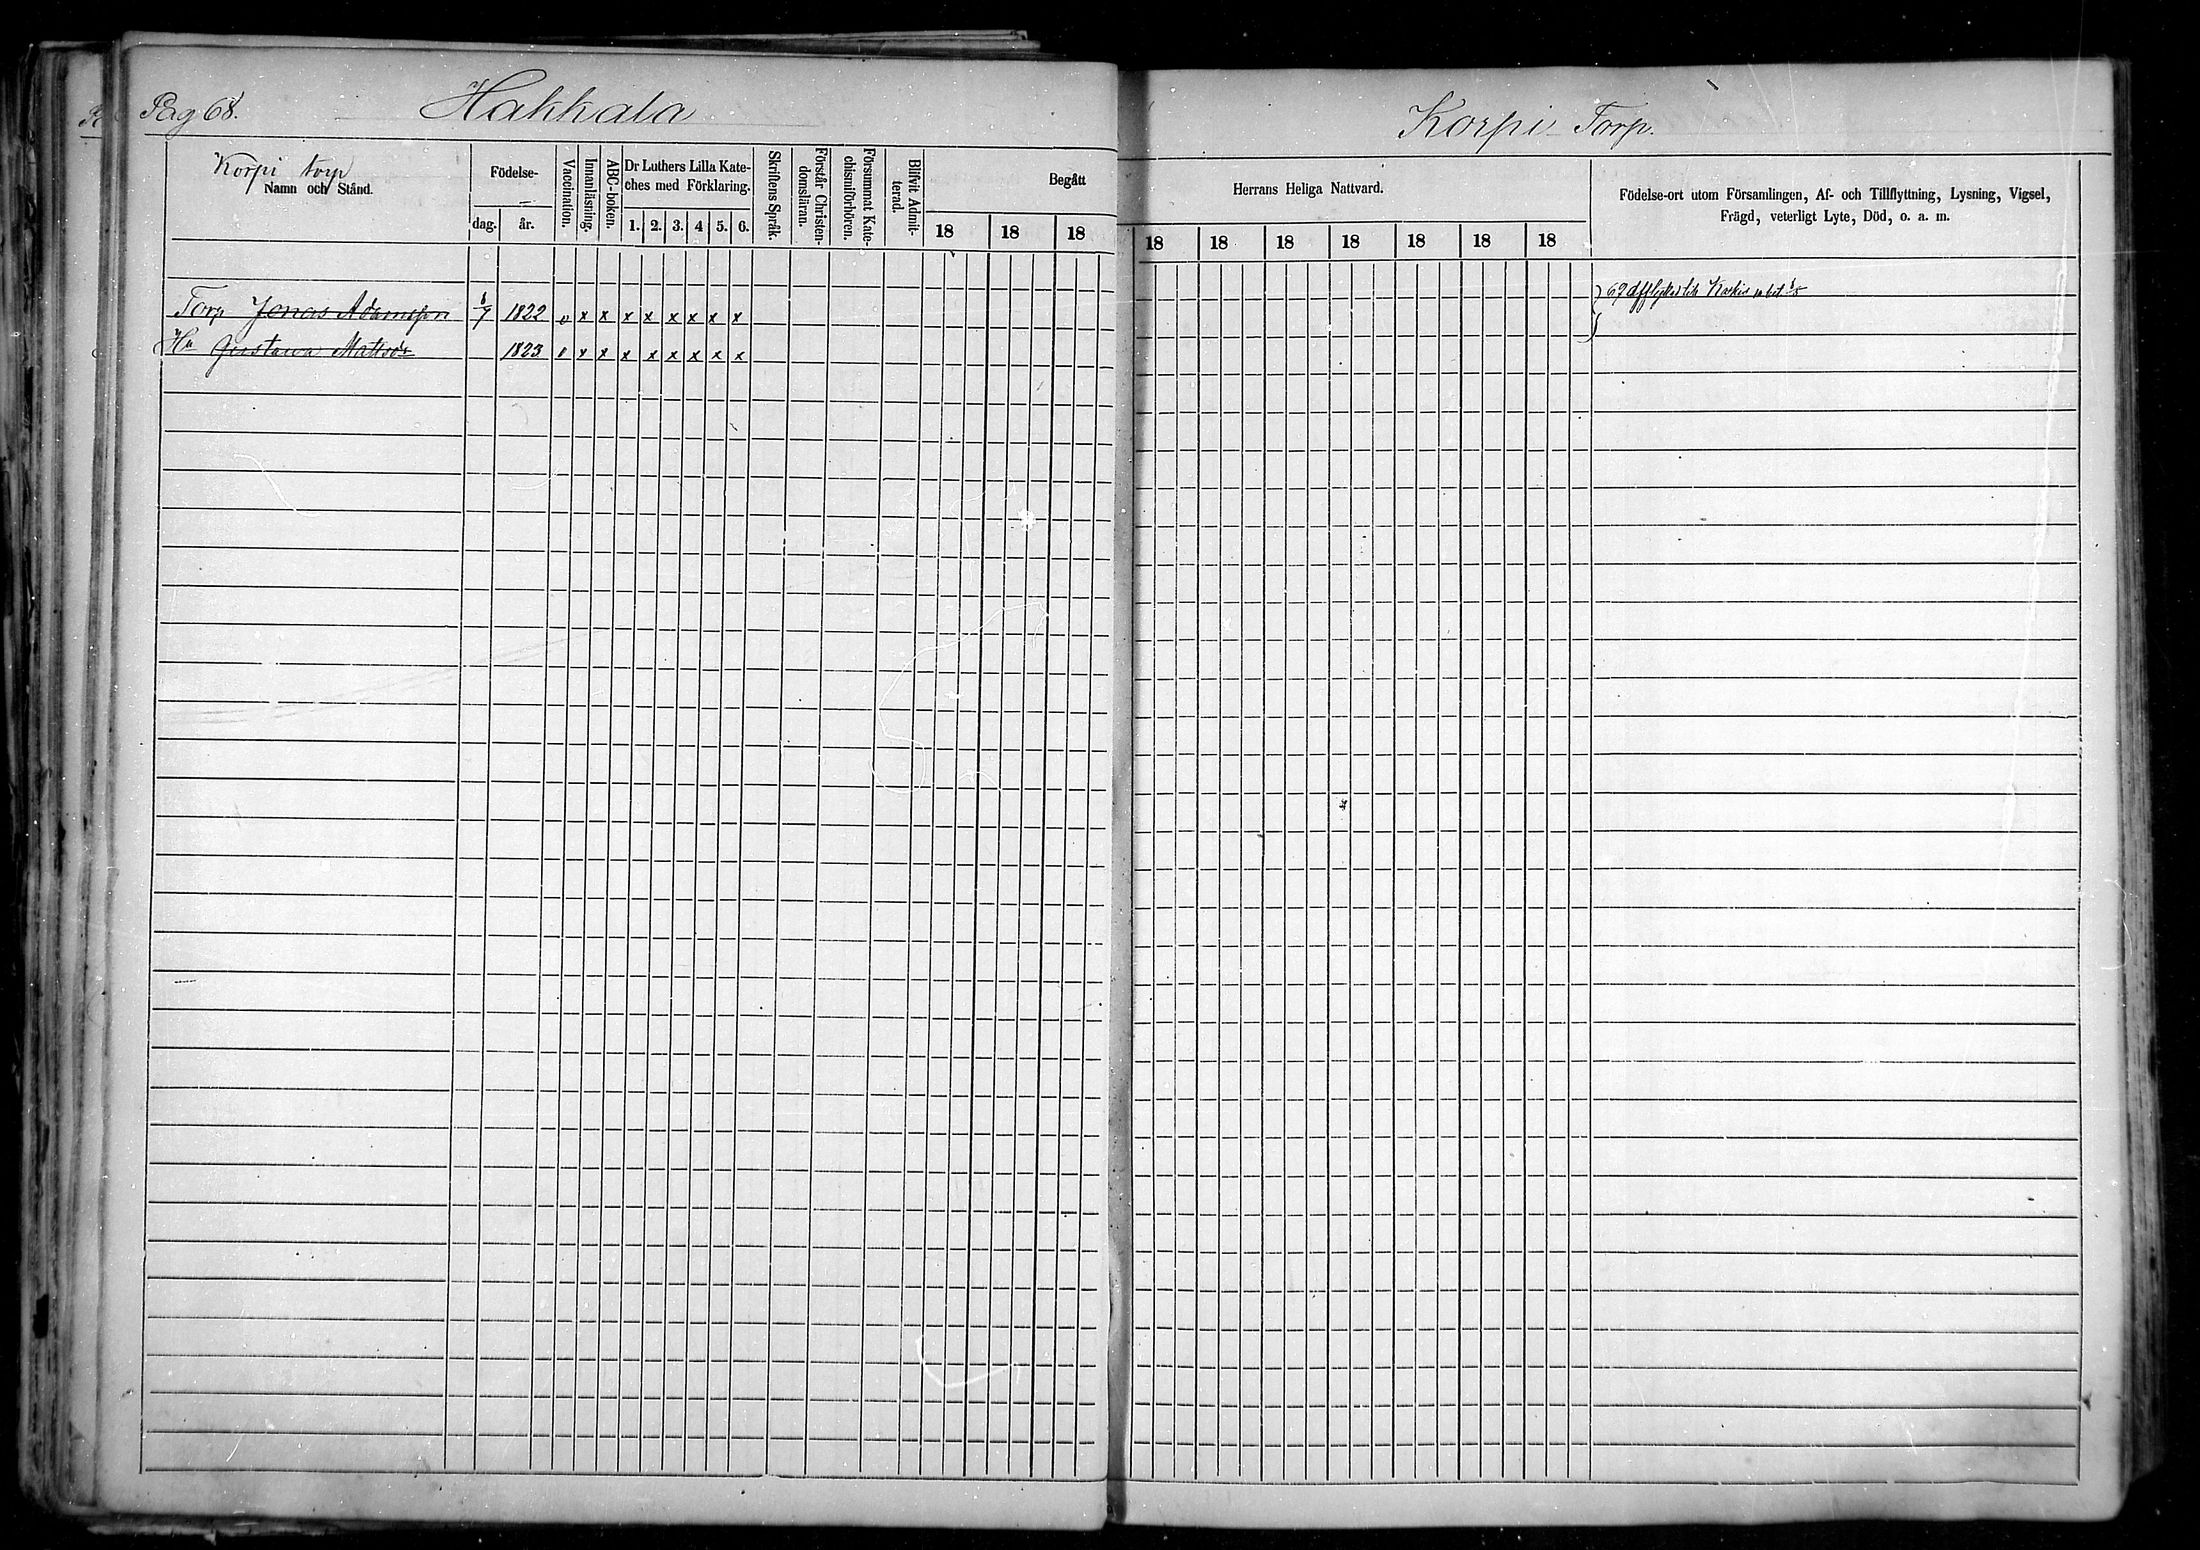 Pag 68.
Hakkala
Korpi Torp.
Korpi torp
Namn och Stånd.
Födelse-
dag.
år.
Vaccination.
Innanläsning.
ABC-boken.
Dr Luthers Lilla Kate-
ches med Förklaring.
1. 2. 3. 4 5. 6.
Skriftens Språk.
Förstår Christen-
domsläran.
Försummat Kate-
chismiförhören.
Blifvit Admit-
terad.
Begått
18 18 18
Herrans Heliga Nattvard.
18 18 18 18 18 18 18
Födelse-ort utom Församlingen, Af- och Tillflyttning, Lysning, Vigsel,
Frägd, veterligt Lyte, Död, o. a. m.
Torp Jonas Adamsson 6/7 1822 v x x x x x x x x
69 afflyttad till
Hu Gustava Mattsdr 1823 v x x x x x x x x